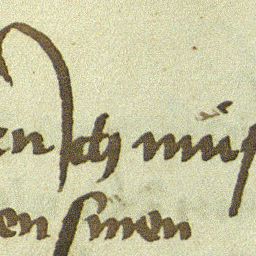 en Ich müſ
en ſinen